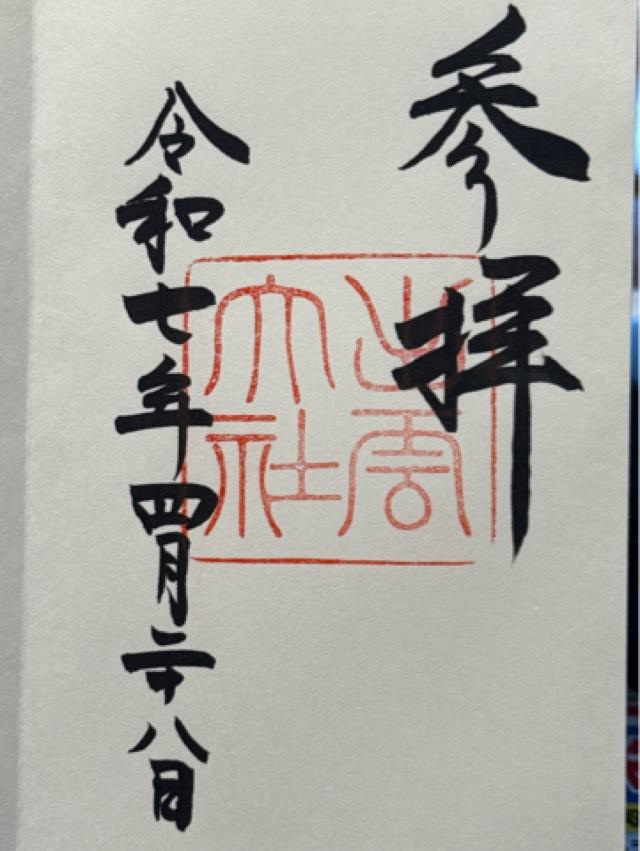 参拝
出雲大社
令和七年四月二十八日